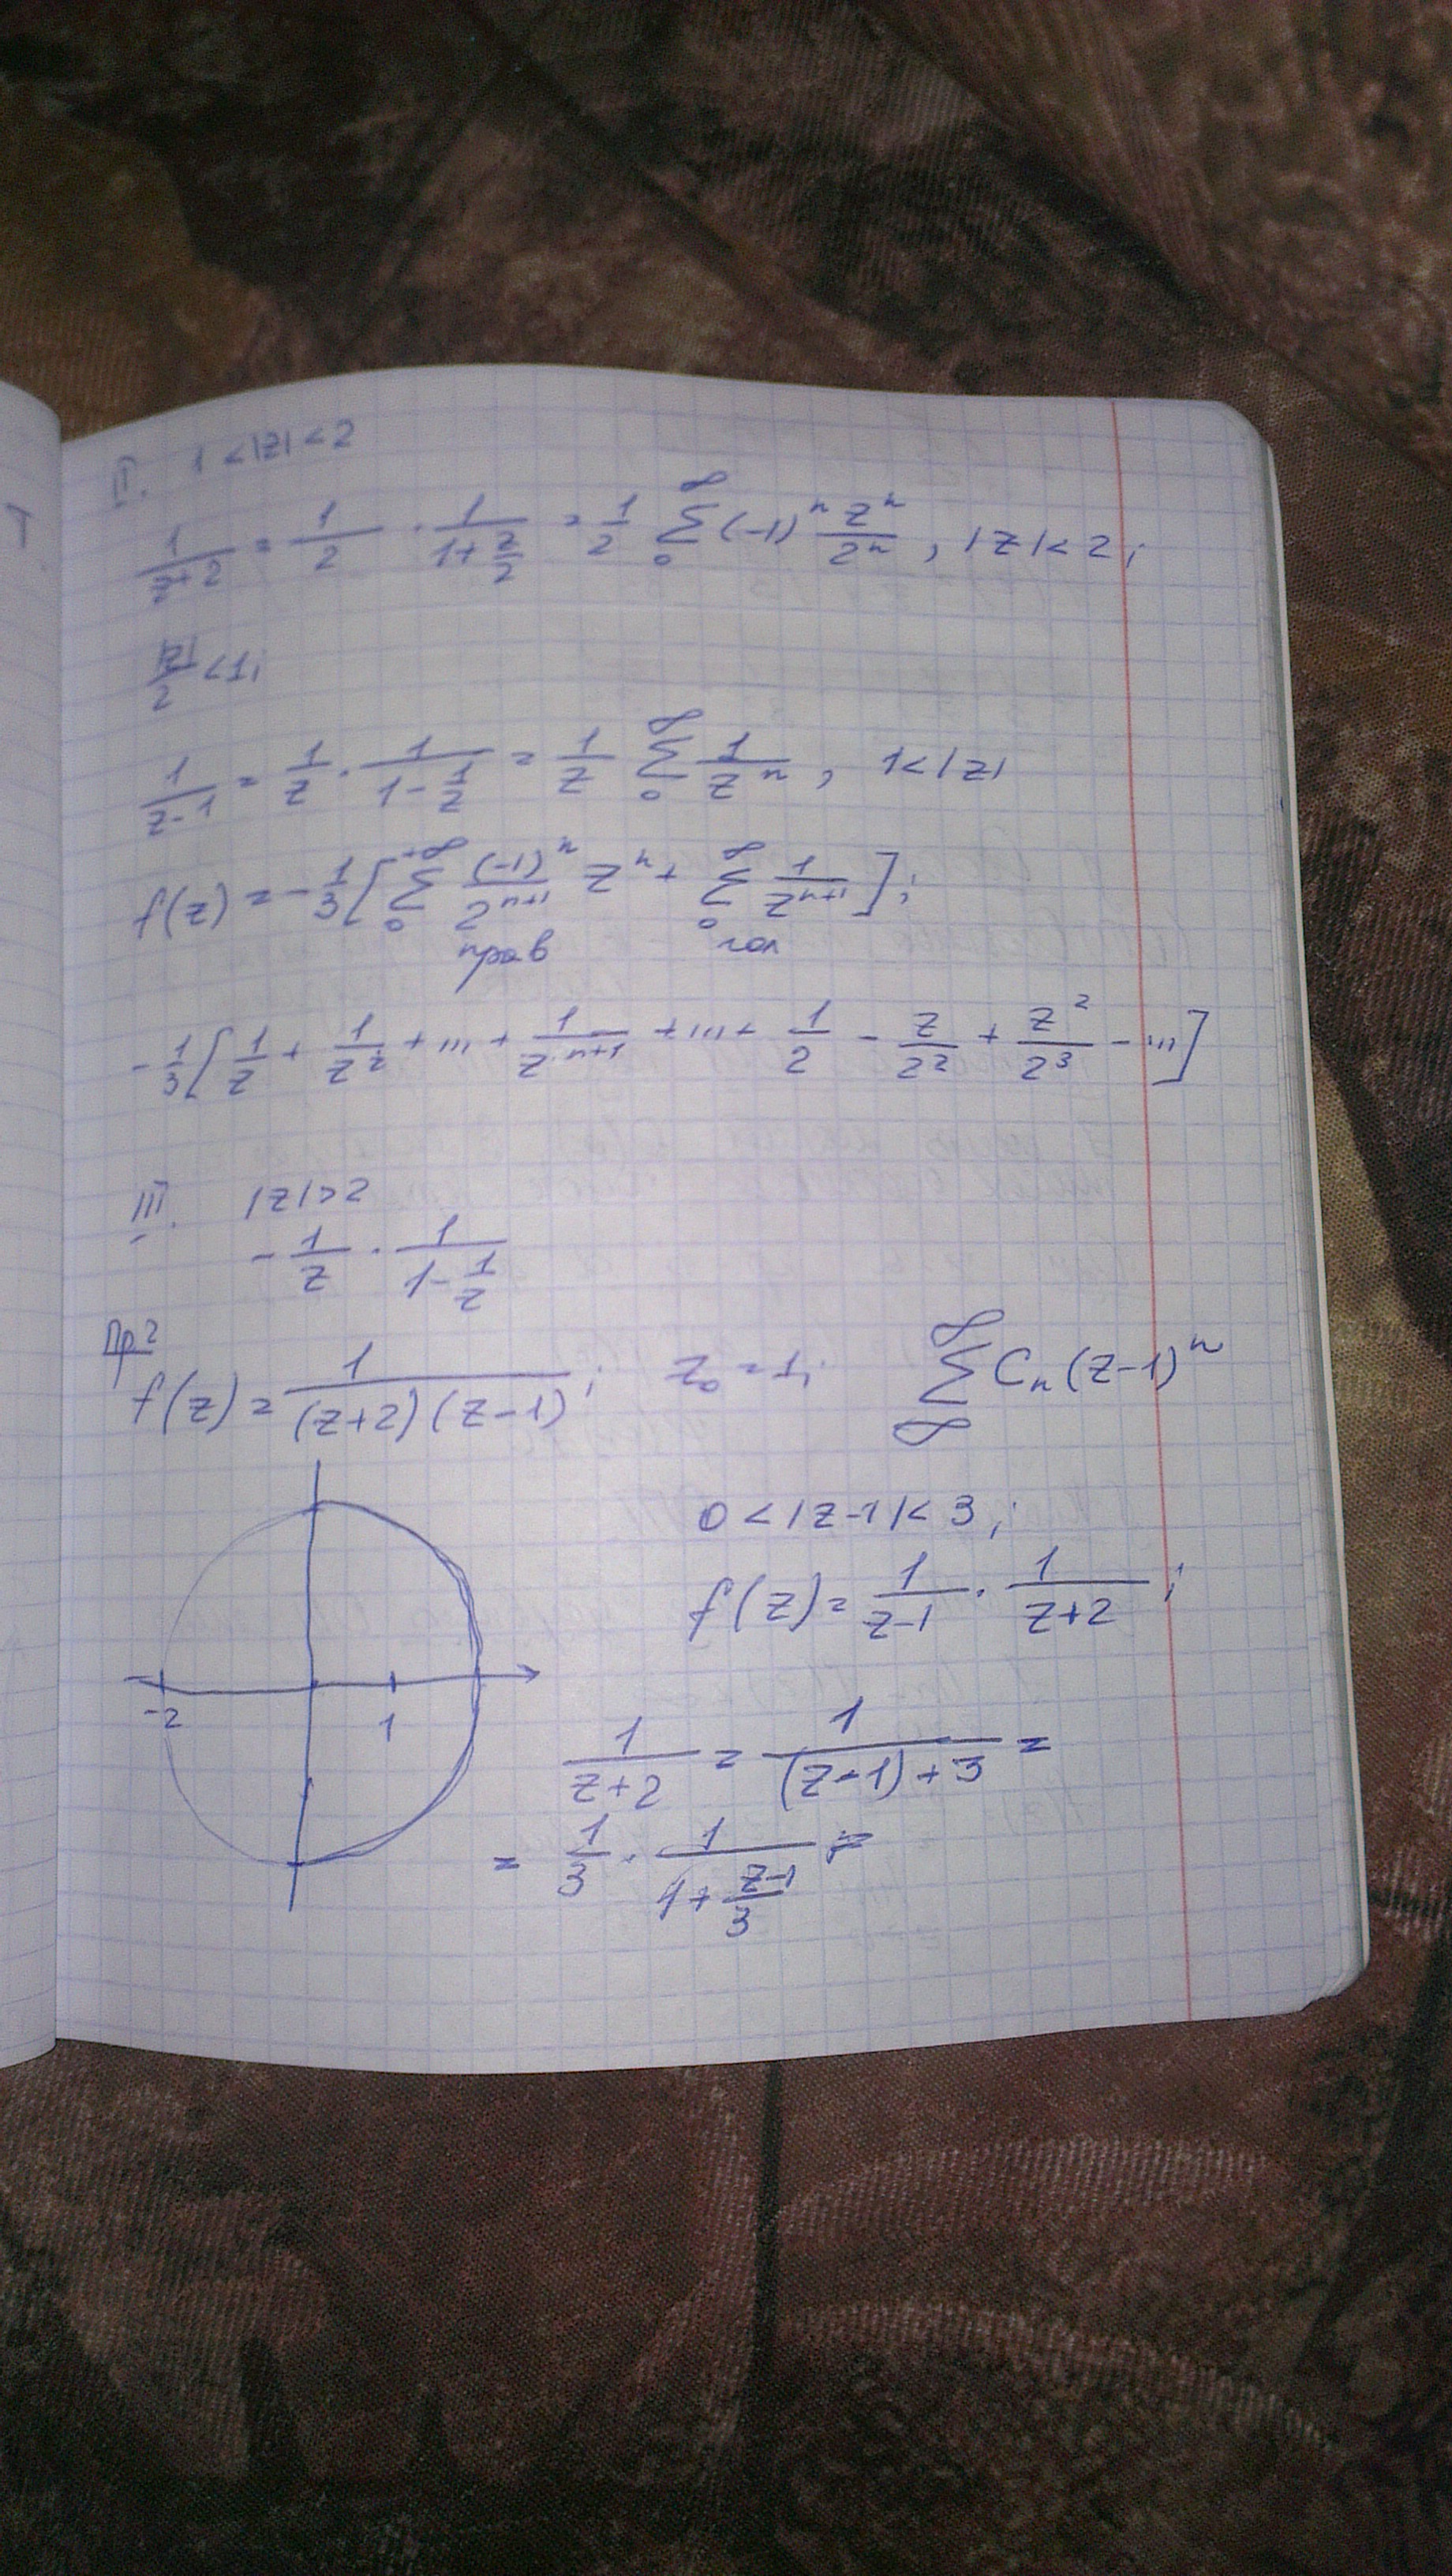 II. 1 < |z| < 2
1/(z+2) = 1/2 · 1/(1+z/2) = 1/2 ∑_0^∞ (-1)^n z^n/2^n , |z| < 2;
|z|/2 < 1;
1/(z-1) = 1/z · 1/(1-1/z) = 1/z ∑_0^∞ 1/z^n , 1 < |z|
f(z) = -1/3 [ ∑_0^{+∞} (-1)^n/2^{n+1} z^n + ∑_0^∞ 1/z^{n+1} ];
прав гол
-1/3 [ 1/z + 1/z^2 + ... + 1/z^{n+1} + ... + 1/2 - z/2^2 + z^2/2^3 - ... ]
III. |z| > 2
-1/z · 1/(1-1/z)
Пр2
f(z) = 1/((z+2)(z-1)); z_0 = 1; ∑_∞^∞ C_n (z-1)^n
0 < |z-1| < 3;
f(z) = 1/(z-1) · 1/(z+2);
-2 1
1/(z+2) = 1/((z-1)+3) =
= 1/3 · 1/(1+(z-1)/3) =